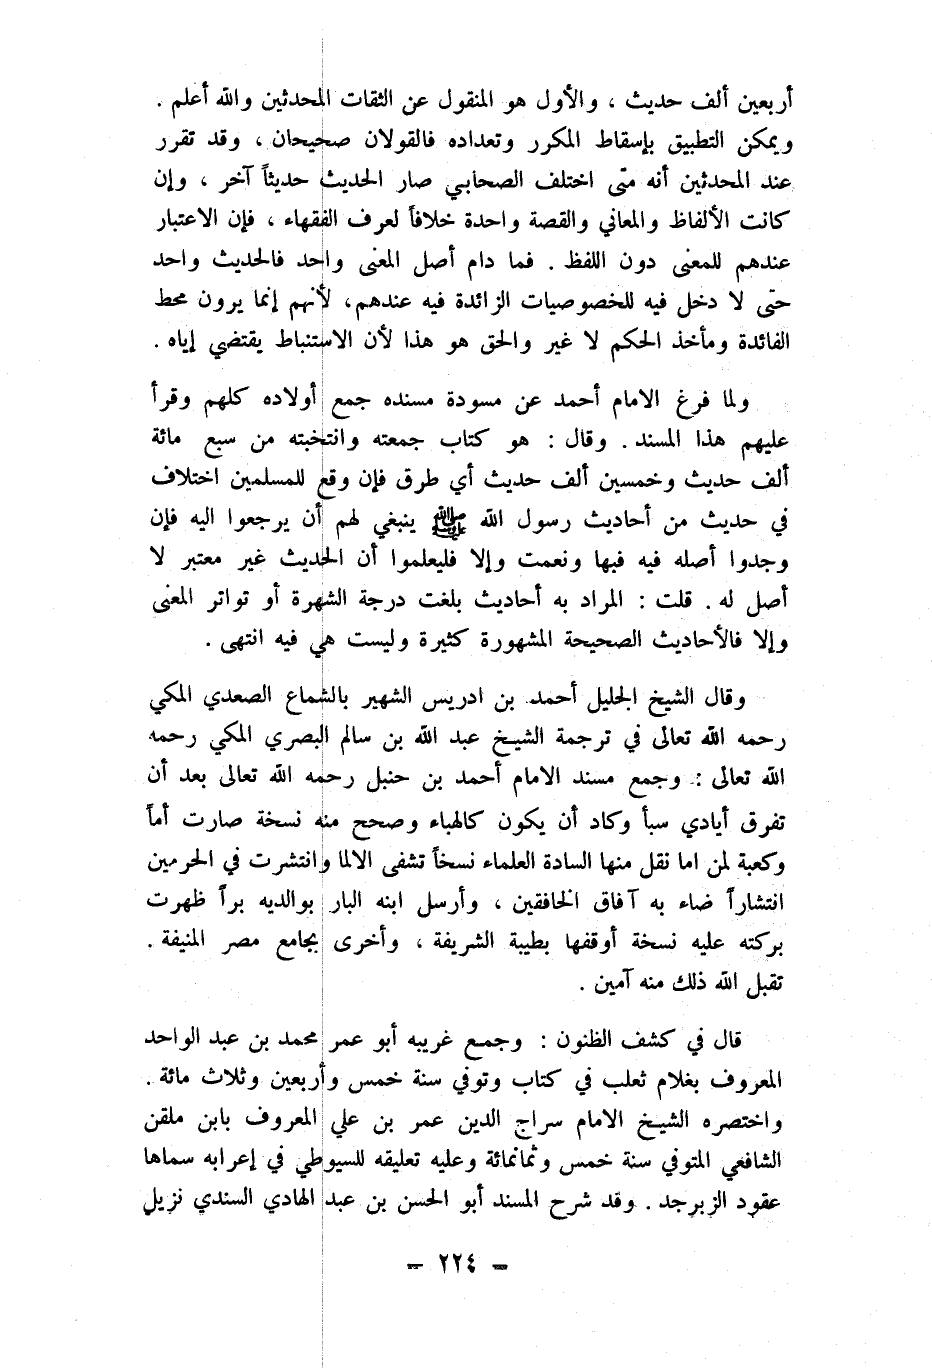 أربعين ألف حديث ، والأول هو المنقول عن الثقات المحدثين والله أعلم .
ويمكن التطبيق بإسقاط المكرر وتعداده فالقولان صحيحان ، وقد تقرر
عند المحدثين أنه متى اختلف الصحابي صار الحديث حديثاً آخر ، وإن
كانت الألفاظ والمعاني والقصة واحدة خلافاً لعرف الفقهاء ، فإن الاعتبار
عندهم للمعنى دون اللفظ . فما دام أصل المعنى واحد فالحديث واحد
حتى لا دخل فيه للخصوصيات الزائدة فيه عندهم، لأنهم إنما يرون محط
الفائدة ومأخذ الحكم لا غير والحق هو هذا لأن الاستنباط يقتضي إياه .
ولما فرغ الامام أحمد عن مسودة مسنده جمع أولاده كلهم وقرأ
عليهم هذا المسند . وقال : هو كتاب جمعته وانتخبته من سبع مائة
ألف حديث وخمسين ألف حديث أي طرق فإن وقع للمسلمين اختلاف
في حديث من أحاديث رسول الله ﷺ ينبغي لهم أن يرجعوا اليه فإن
وجدوا أصله فيه فبها ونعمت وإلا فليعلموا أن الحديث غير معتبر لا
أصل له . قلت : المراد به أحاديث بلغت درجة الشهرة أو تواتر المعنى
وإلا فالأحاديث الصحيحة المشهورة كثيرة وليست هي فيه انتهى .
وقال الشيخ الجليل أحمد بن ادريس الشهير بالشماع الصعدي المكي
رحمه الله تعالى في ترجمة الشيخ عبد الله بن سالم البصري المكي رحمه
الله تعالى : وجمع مسند الامام أحمد بن حنبل رحمه الله تعالى بعد أن
تفرق أيادي سبأ وكاد أن يكون كالهباء وصحح منه نسخة صارت أماً
وكعبة لمن اما نقل منها السادة العلماء نسخاً تشفى الالما وانتشرت في الحرمين
انتشاراً ضاء به آفاق الخافقين ، وأرسل ابنه البار بوالديه براً ظهرت
بركته عليه نسخة أوقفها بطيبة الشريفة ، وأخرى بجامع مصر المنيفة .
تقبل الله ذلك منه آمين .
قال في كشف الظنون : وجمع غريبه أبو عمر محمد بن عبد الواحد
المعروف بغلام ثعلب في كتاب وتوفي سنة خمس وأربعين وثلاث مائة .
واختصره الشيخ الامام سراج الدين عمر بن علي المعروف بابن ملقن
الشافعي المتوفي سنة خمس وثمانمائة وعليه تعليقه للسيوطي في إعرابه سماها
عقود الزبرجد . وقد شرح المسند أبو الحسن بن عبد الهادي السندي نزيل
– ٢٢٤ –